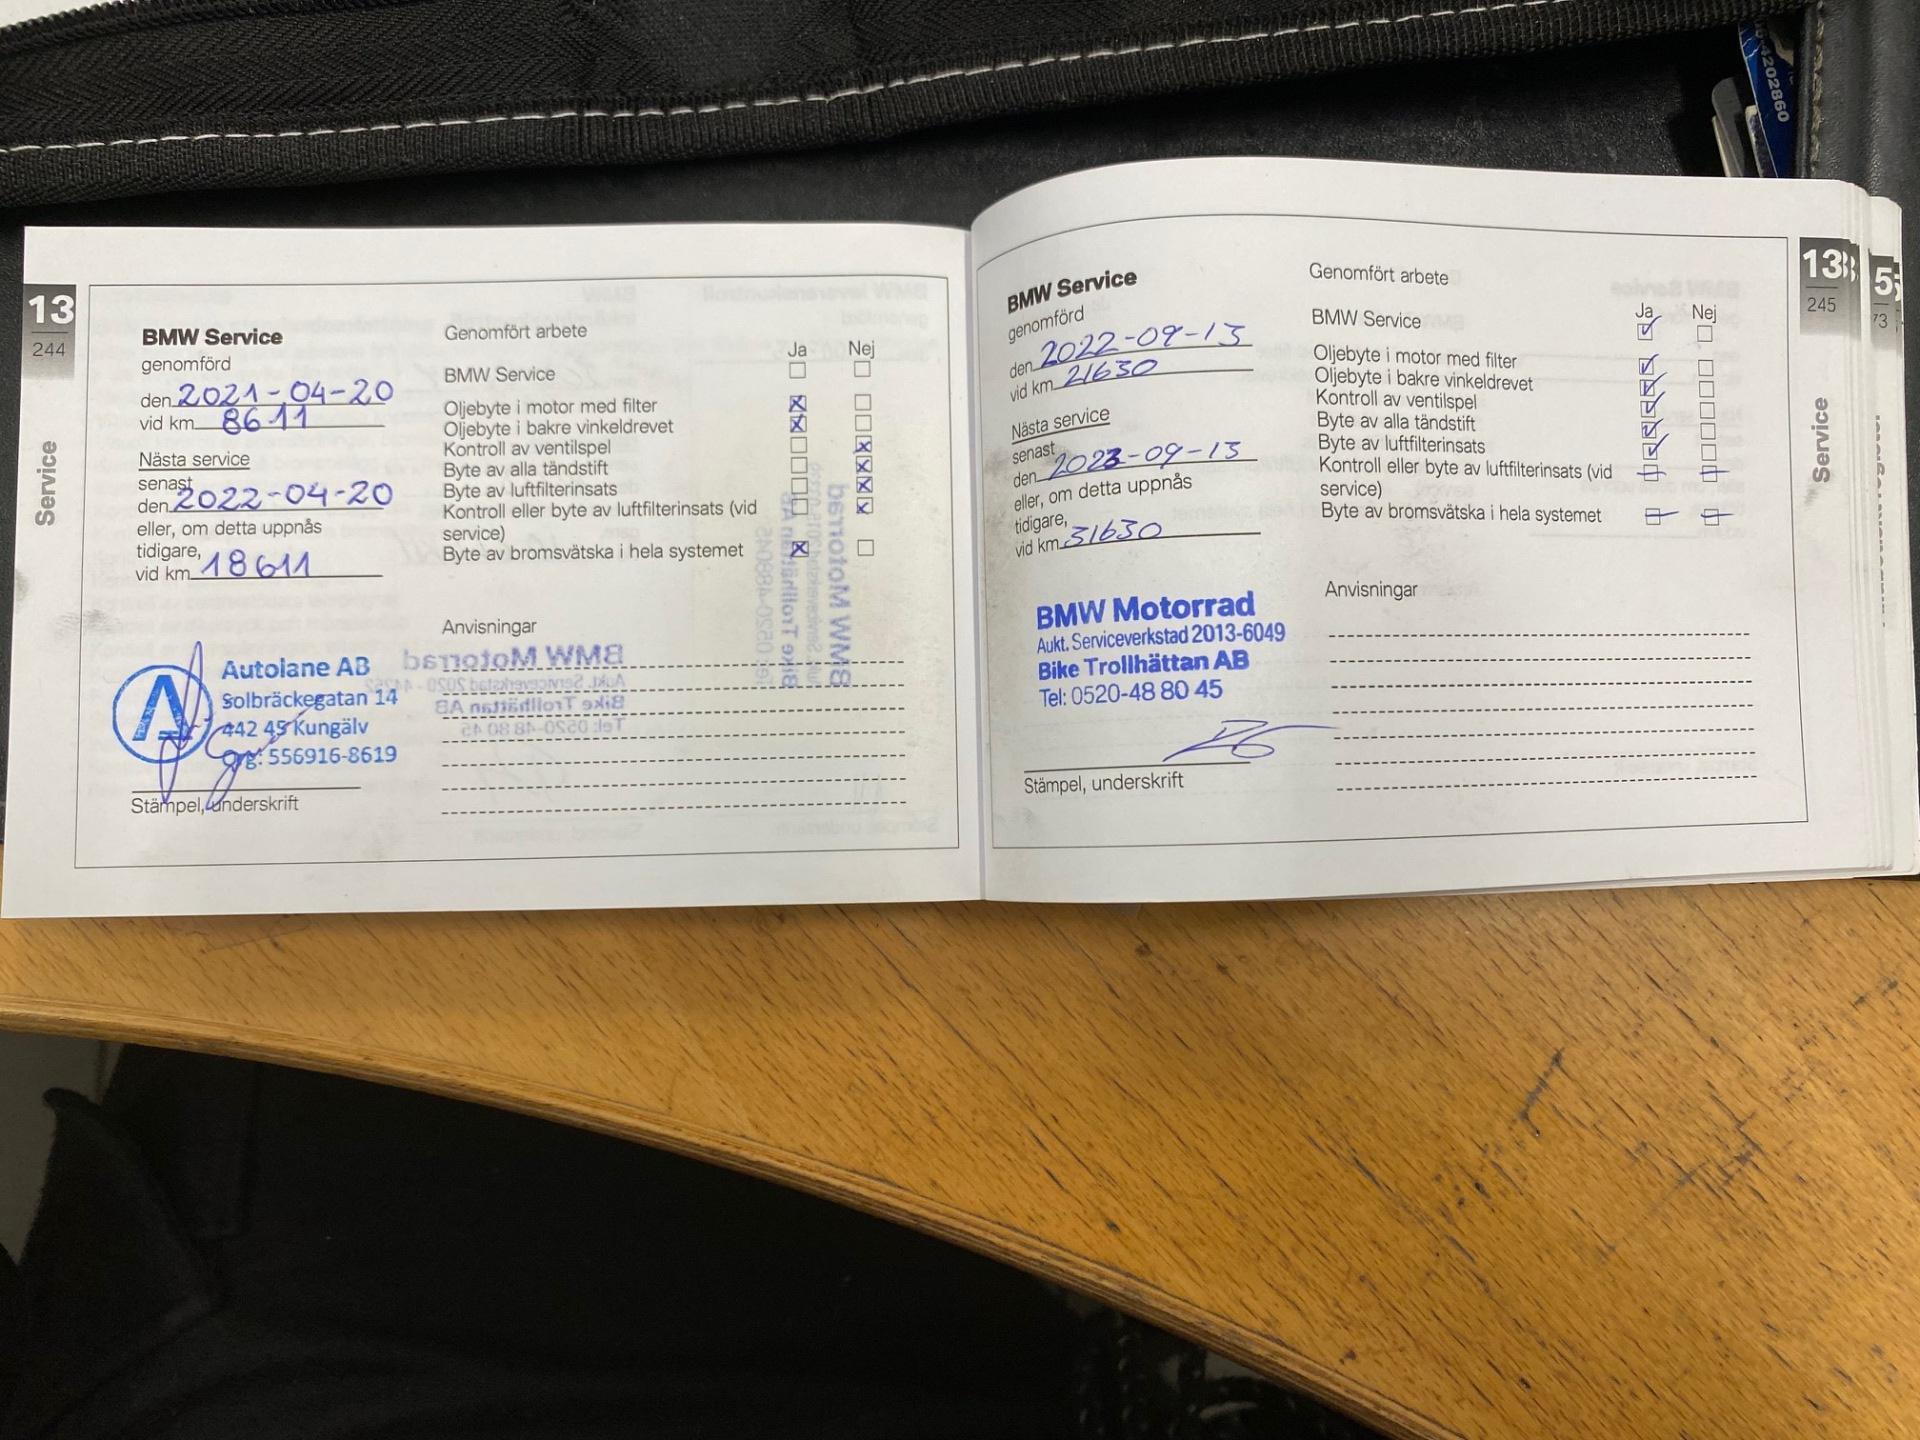 13
244
Service
BMW Service
genomförd
den 2021-04-20
vid km 8611
Nästa service
senast
den 2022-04-20
eller, om detta uppnås
tidigare,
vid km 18611
Autolane AB
Solbräckegatan 14
442 45 Kungälv
org: 556916-8619
Stämpel, underskrift
Genomfört arbete
Ja Nej
BMW Service
Oljebyte i motor med filter
Oljebyte i bakre vinkeldrevet
Kontroll av ventilspel
Byte av alla tändstift
Byte av luftfilterinsats
Kontroll eller byte av luftfilterinsats (vid
service)
Byte av bromsvätska i hela systemet
Anvisningar
BMW Motorrad
Aukt. Serviceverkstad 2020 -
Bike Trollhättan AB
Tel: 0520-48 80 45
BMW Motorrad
Bike Trollhättan AB
BMW Service
genomförd
den 2022-09-13
vid km 21630
Nästa service
senast
den 2023-09-13
eller, om detta uppnås
tidigare,
vid km 31630
BMW Motorrad
Aukt. Serviceverkstad 2013-6049
Bike Trollhättan AB
Tel: 0520-48 80 45
Stämpel, underskrift
Genomfört arbete
Ja Nej
BMW Service
Oljebyte i motor med filter
Oljebyte i bakre vinkeldrevet
Kontroll av ventilspel
Byte av alla tändstift
Byte av luftfilterinsats
Kontroll eller byte av luftfilterinsats (vid
service)
Byte av bromsvätska i hela systemet
Anvisningar
13
245
Service
5
73
4202860